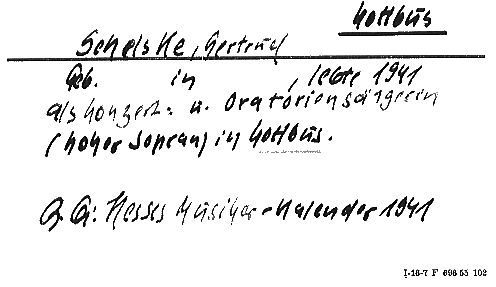 Cottbus
Schelske, Gertrud
Geb. in , lebte 1941
als Konzert= u. Oratoriensängerin
(hoher Sopran) in Cottbus.
Q: Hesses Musiker-Kalender 1941
I-16-7 F 698 55 102